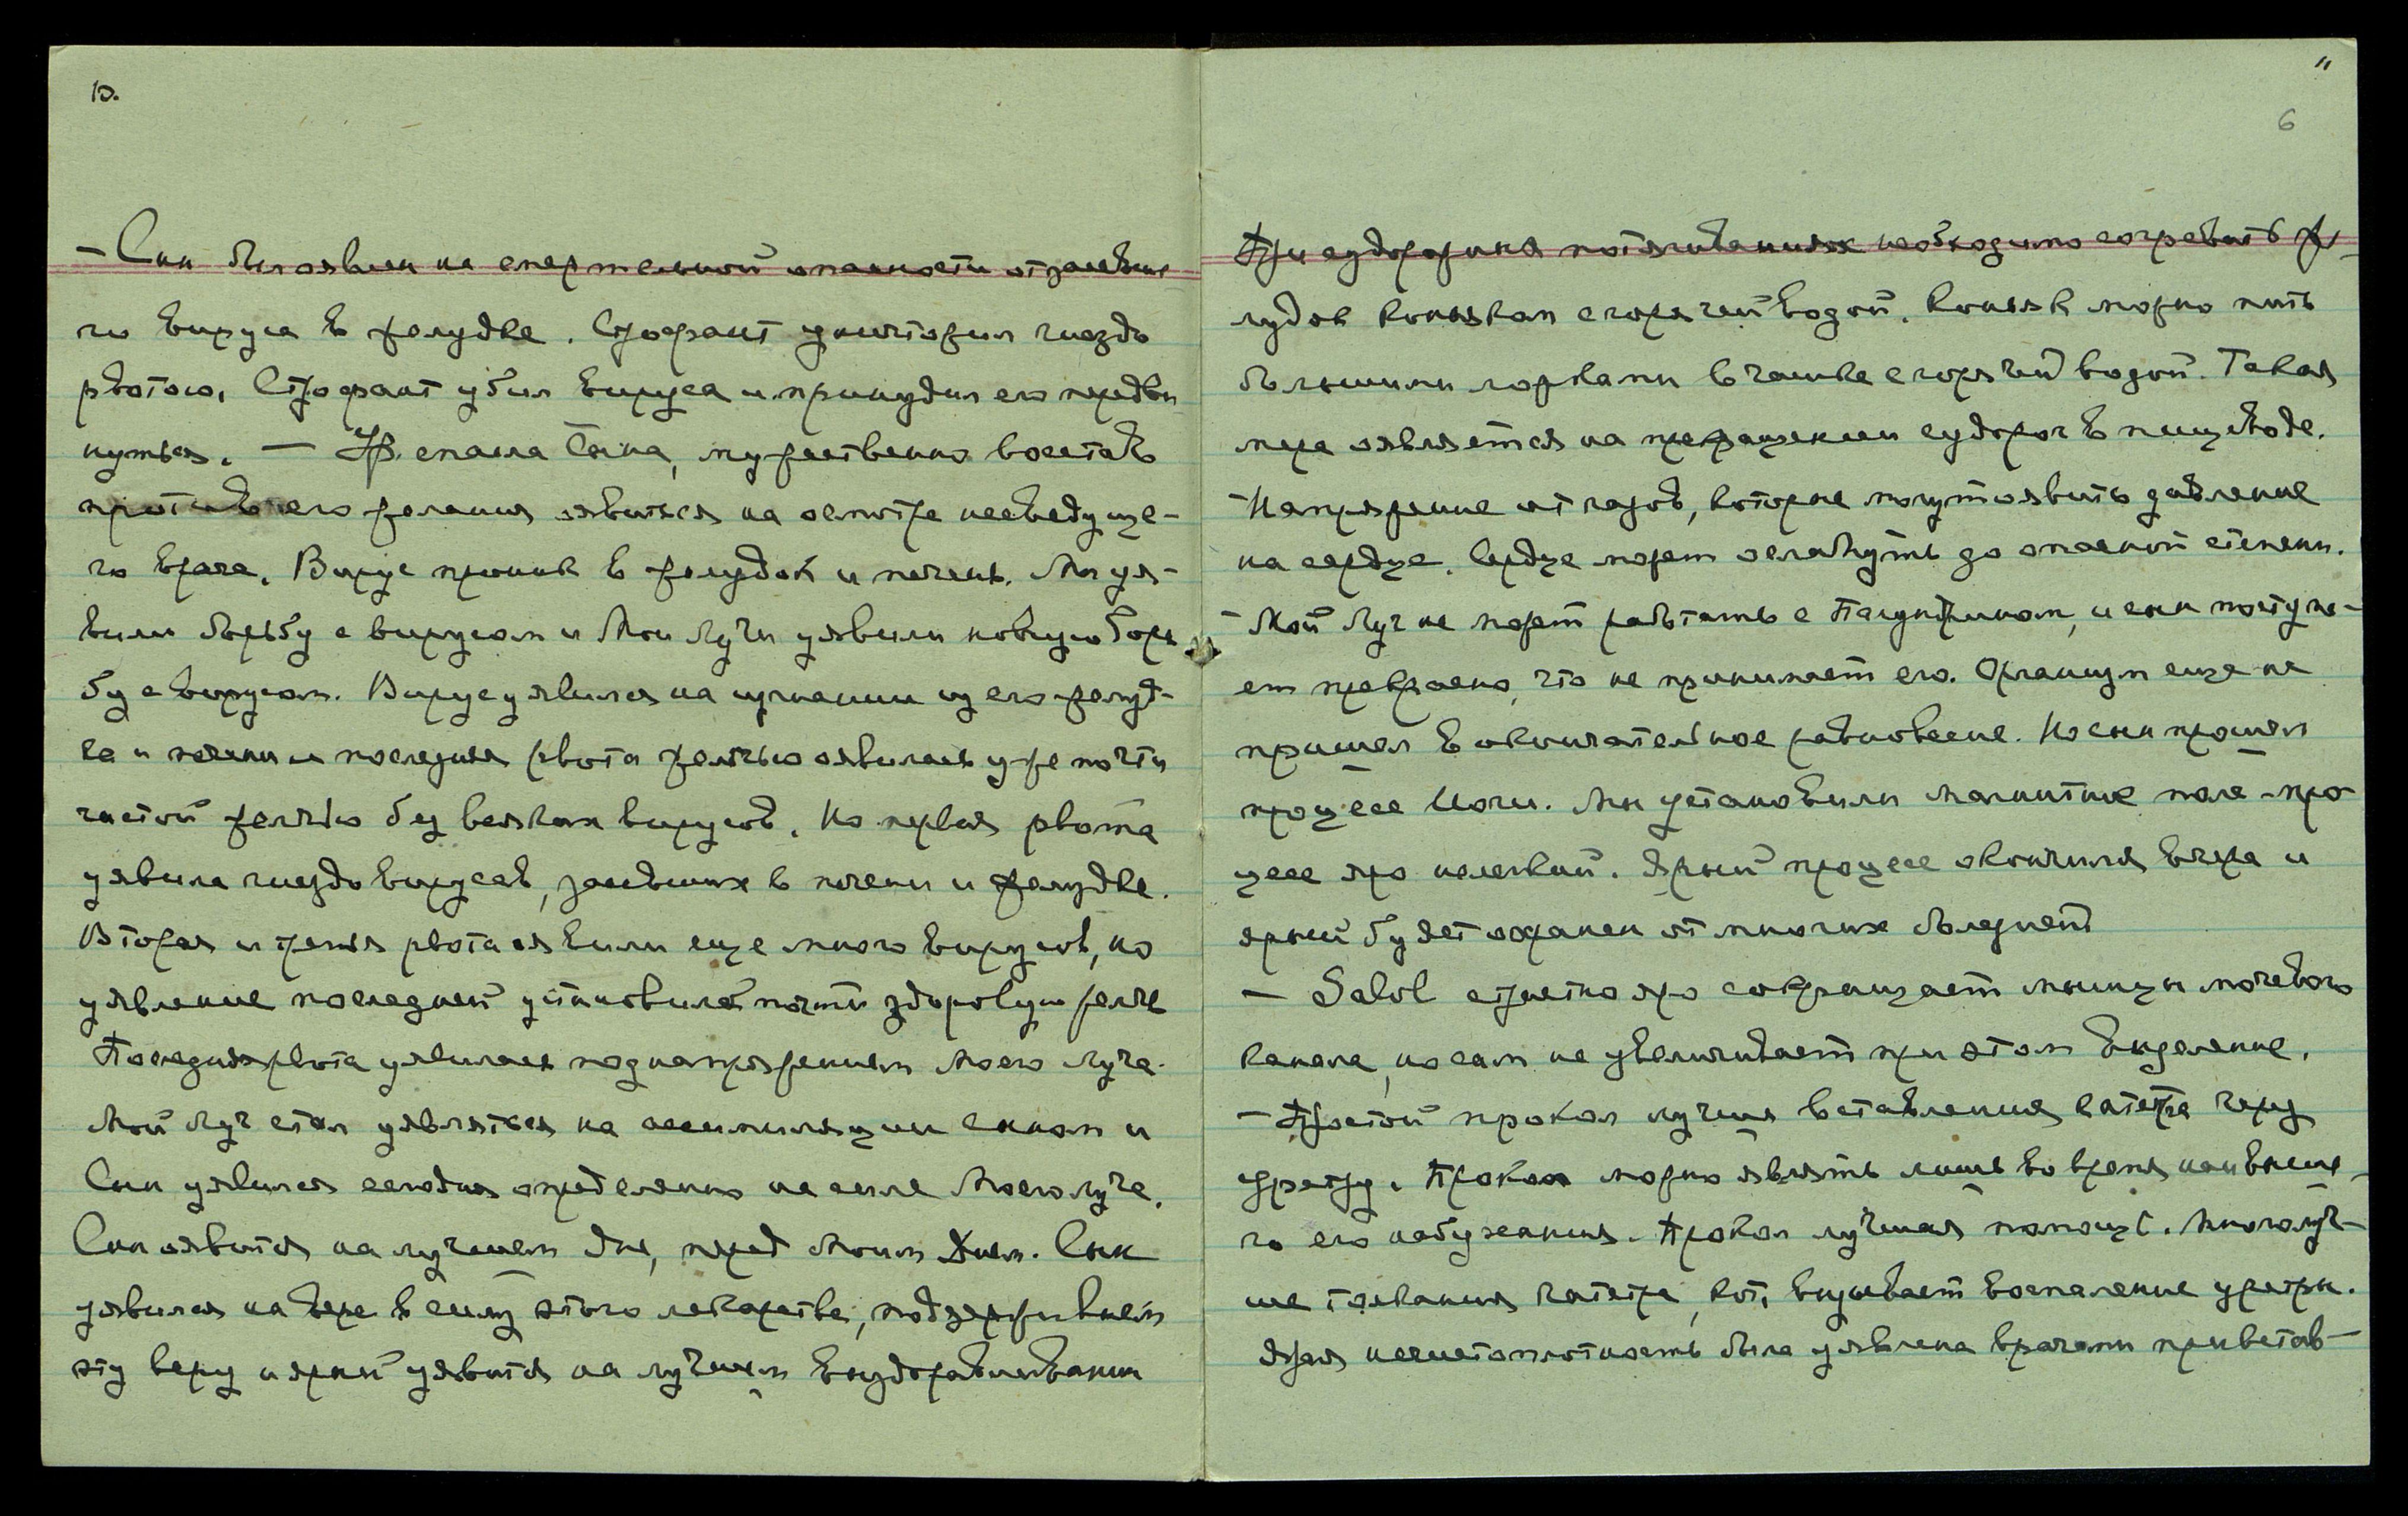 10.
— Сын был явлен на смертельной опасности от засевше-
го вируса в желудке. Строфант уничтожил гнездо
рвотою. Строфант убил вируса и принудил его передви
нуться. — Ур. спасла Сына, мужественно восстав
против его желания явиться на осмотре несведуще-
го врача. Вирус проник в желудок и печень. Мы уя-
вили борьбу с вирусом и Мои Лучи уявили новую борь
бу с вирусом. Вирус уявился на изгнании из его желуд-
ка и печени и последняя рвота желчью оявилась уже почти
чистой желчью без всяких вирусов. Но первая рвота
уявила гнездо вирусов, засевших в печени и желудке.
Вторая и третья рвота явили еще много вирусов, но
уявление последней установило почти здоровую желчь
Последняя рвота уявилась под напряжением Моего Луча.
Мой Луч стал уявляться на ассимиляции сыном и
Сын уявился сегодня определенно на силе Моего луча.
Сын оявится на лучшем дне, перед Моим Днем. Сын
уявился на вере в силу этого лекарства, поддерживаем
эту веру и ярый уявится на лучшем выздоравливании
11
6
При судорожных потягиваниях необходимо согревать же-
лудок коньяком с горячей водой. Коньяк можно пить
большими ложками в чашке с горячей водой. Такая
мера оявляется на прекращении судорог в пищеводе.
— Напряжение от газов, которые могут оявить давление
на сердце. Сердце может ослабнуть до опасной степени.
— Мой Луч не может работать с Пагунтрином, и сын поступа-
ет прекрасно, что не принимает его. Организм еще не
пришел в окончательное равновесие. Но сын прошел
процесс Йоги. Мы установили магнитное поле - про-
цесс яро нелегкий. Ярый процесс окончился вчера и
ярый будет сохранен от многих болезней
— Salol страстно яро сокращает мышцы мочевого
канала, но сам не увеличивает при этом выделение.
— Простой прокол лучше вставления катетра через
уретру. Прокол можно являть лишь во время наивысше-
го его набухания. Прокол лучшая помощь. Много луч-
ше толкания катетра, кот. вызывает воспаление уретры.
Ярая нечистоплотность была уявлена врачами при встав-